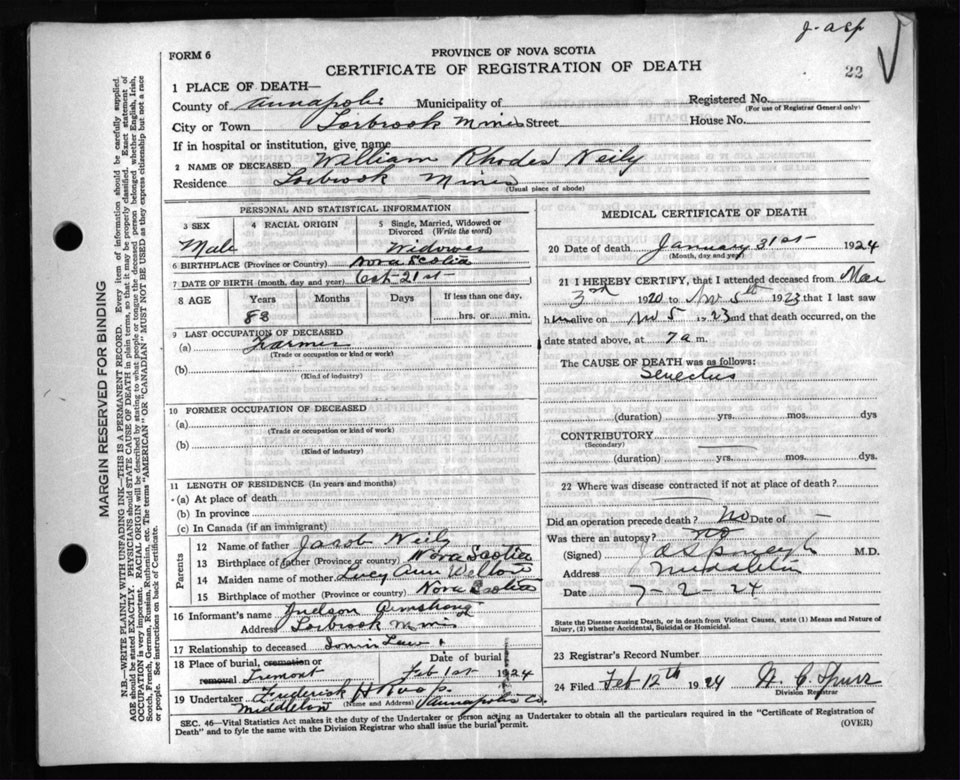 J-asp
22
FORM 6
PROVINCE OF NOVA SCOTIA
CERTIFICATE OF REGISTRATION OF DEATH
1 PLACE OF DEATH—
County of Annapolis Municipality of
Registered No.
(For use of Registrar General only)
City or Town Torbrook Mines Street
House No.
If in hospital or institution, give name
2 NAME OF DECEASED William Rhodes Neily
Residence Torbrook Mines
(Usual place of abode)
PERSONAL AND STATISTICAL INFORMATION
3 SEX
Male
4 RACIAL ORIGIN
5 Single, Married, Widowed or Divorced (Write the word)
Widower
6 BIRTHPLACE (Province or Country) Nova Scotia
7 DATE OF BIRTH (month, day and year) Oct-21st
8 AGE Years Months Days If less than one day,
88 hrs. or min.
9 LAST OCCUPATION OF DECEASED
(a) Farmer
(Trade or occupation or kind or work)
(b)
(Kind of industry)
10 FORMER OCCUPATION OF DECEASED
(a)
(Trade or occupation or kind of work)
(b)
(Kind of industry)
11 LENGTH OF RESIDENCE (In years and months)
(a) At place of death
(b) In province
(c) In Canada (if an immigrant)
Parents
12 Name of father Jacob Neily
13 Birthplace of father (Province or country) Nova Scotia
14 Maiden name of mother Lucy Ann
15 Birthplace of mother (Province or country) Nova Scotia
16 Informant's name Armstrong
Address Torbrook Mines
17 Relationship to deceased Son in Law
18 Place of burial, cremation or removal Tremont
Date of burial Feb 1st 1924
19 Undertaker Frederick H Roop
Middleton (Name and Address) Annapolis Co.
MEDICAL CERTIFICATE OF DEATH
20 Date of death January 31st 1924
(Month, day and year)
21 I HEREBY CERTIFY, that I attended deceased from Mar
3rd 1920 to Nv 5th 1923 that I last saw
him alive on Nv 5 1923 and that death occurred, on
date stated above, at 7 a m.
The CAUSE OF DEATH was as follows:
Senectus
(duration) yrs. mos. dys
CONTRIBUTORY
(Secondary)
(duration) yrs. mos. dys.
22 Where was disease contracted if not at place of death?
Did an operation precede death? No Date of —
Was there an autopsy? no
(Signed) M.D.
Address Middleton
Date 7-2-24
State the Disease causing Death, or in death from Violent Causes, state (1) Means and Nature of
Injury, (2) whether Accidental, Suicidal or Homicidal.
23 Registrar's Record Number
24 Filed Feb 12th 1924
Division Registrar
SEC. 46—Vital Statistics Act makes it the duty of the Undertaker or person acting as Undertaker to obtain all the particulars required in the "Certificate of Registration of
Death" and to fyle the same with the Division Registrar who shall issue the burial permit.
(OVER)
MARGIN RESERVED FOR BINDING
N.B.—WRITE PLAINLY WITH UNFADING INK—THIS IS A PERMANENT RECORD. Every item of information should be carefully supplied.
AGE should be stated EXACTLY. PHYSICIANS should STATE CAUSE OF DEATH in plain terms, so that it may be properly classified. Exact statement of
OCCUPATION is very important. RACIAL ORIGIN will be described by stating to what people or tongue the deceased person belonged whether English, Irish,
Scotch, French, German, Russian, Ruthenian, etc. The terms "AMERICAN" OR "CANADIAN" MUST NOT BE USED as they express citizenship but not a race
or people. See instructions on back of Certificate.